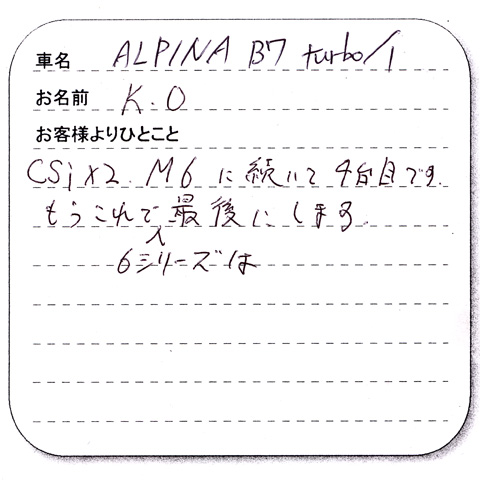 車名 ALPINA B7 turbo/1
お名前 K.O
お客様よりひとこと
CSi×2. M6 に続いて 4台目です.
もうこれで最後にします.
6シリーズは